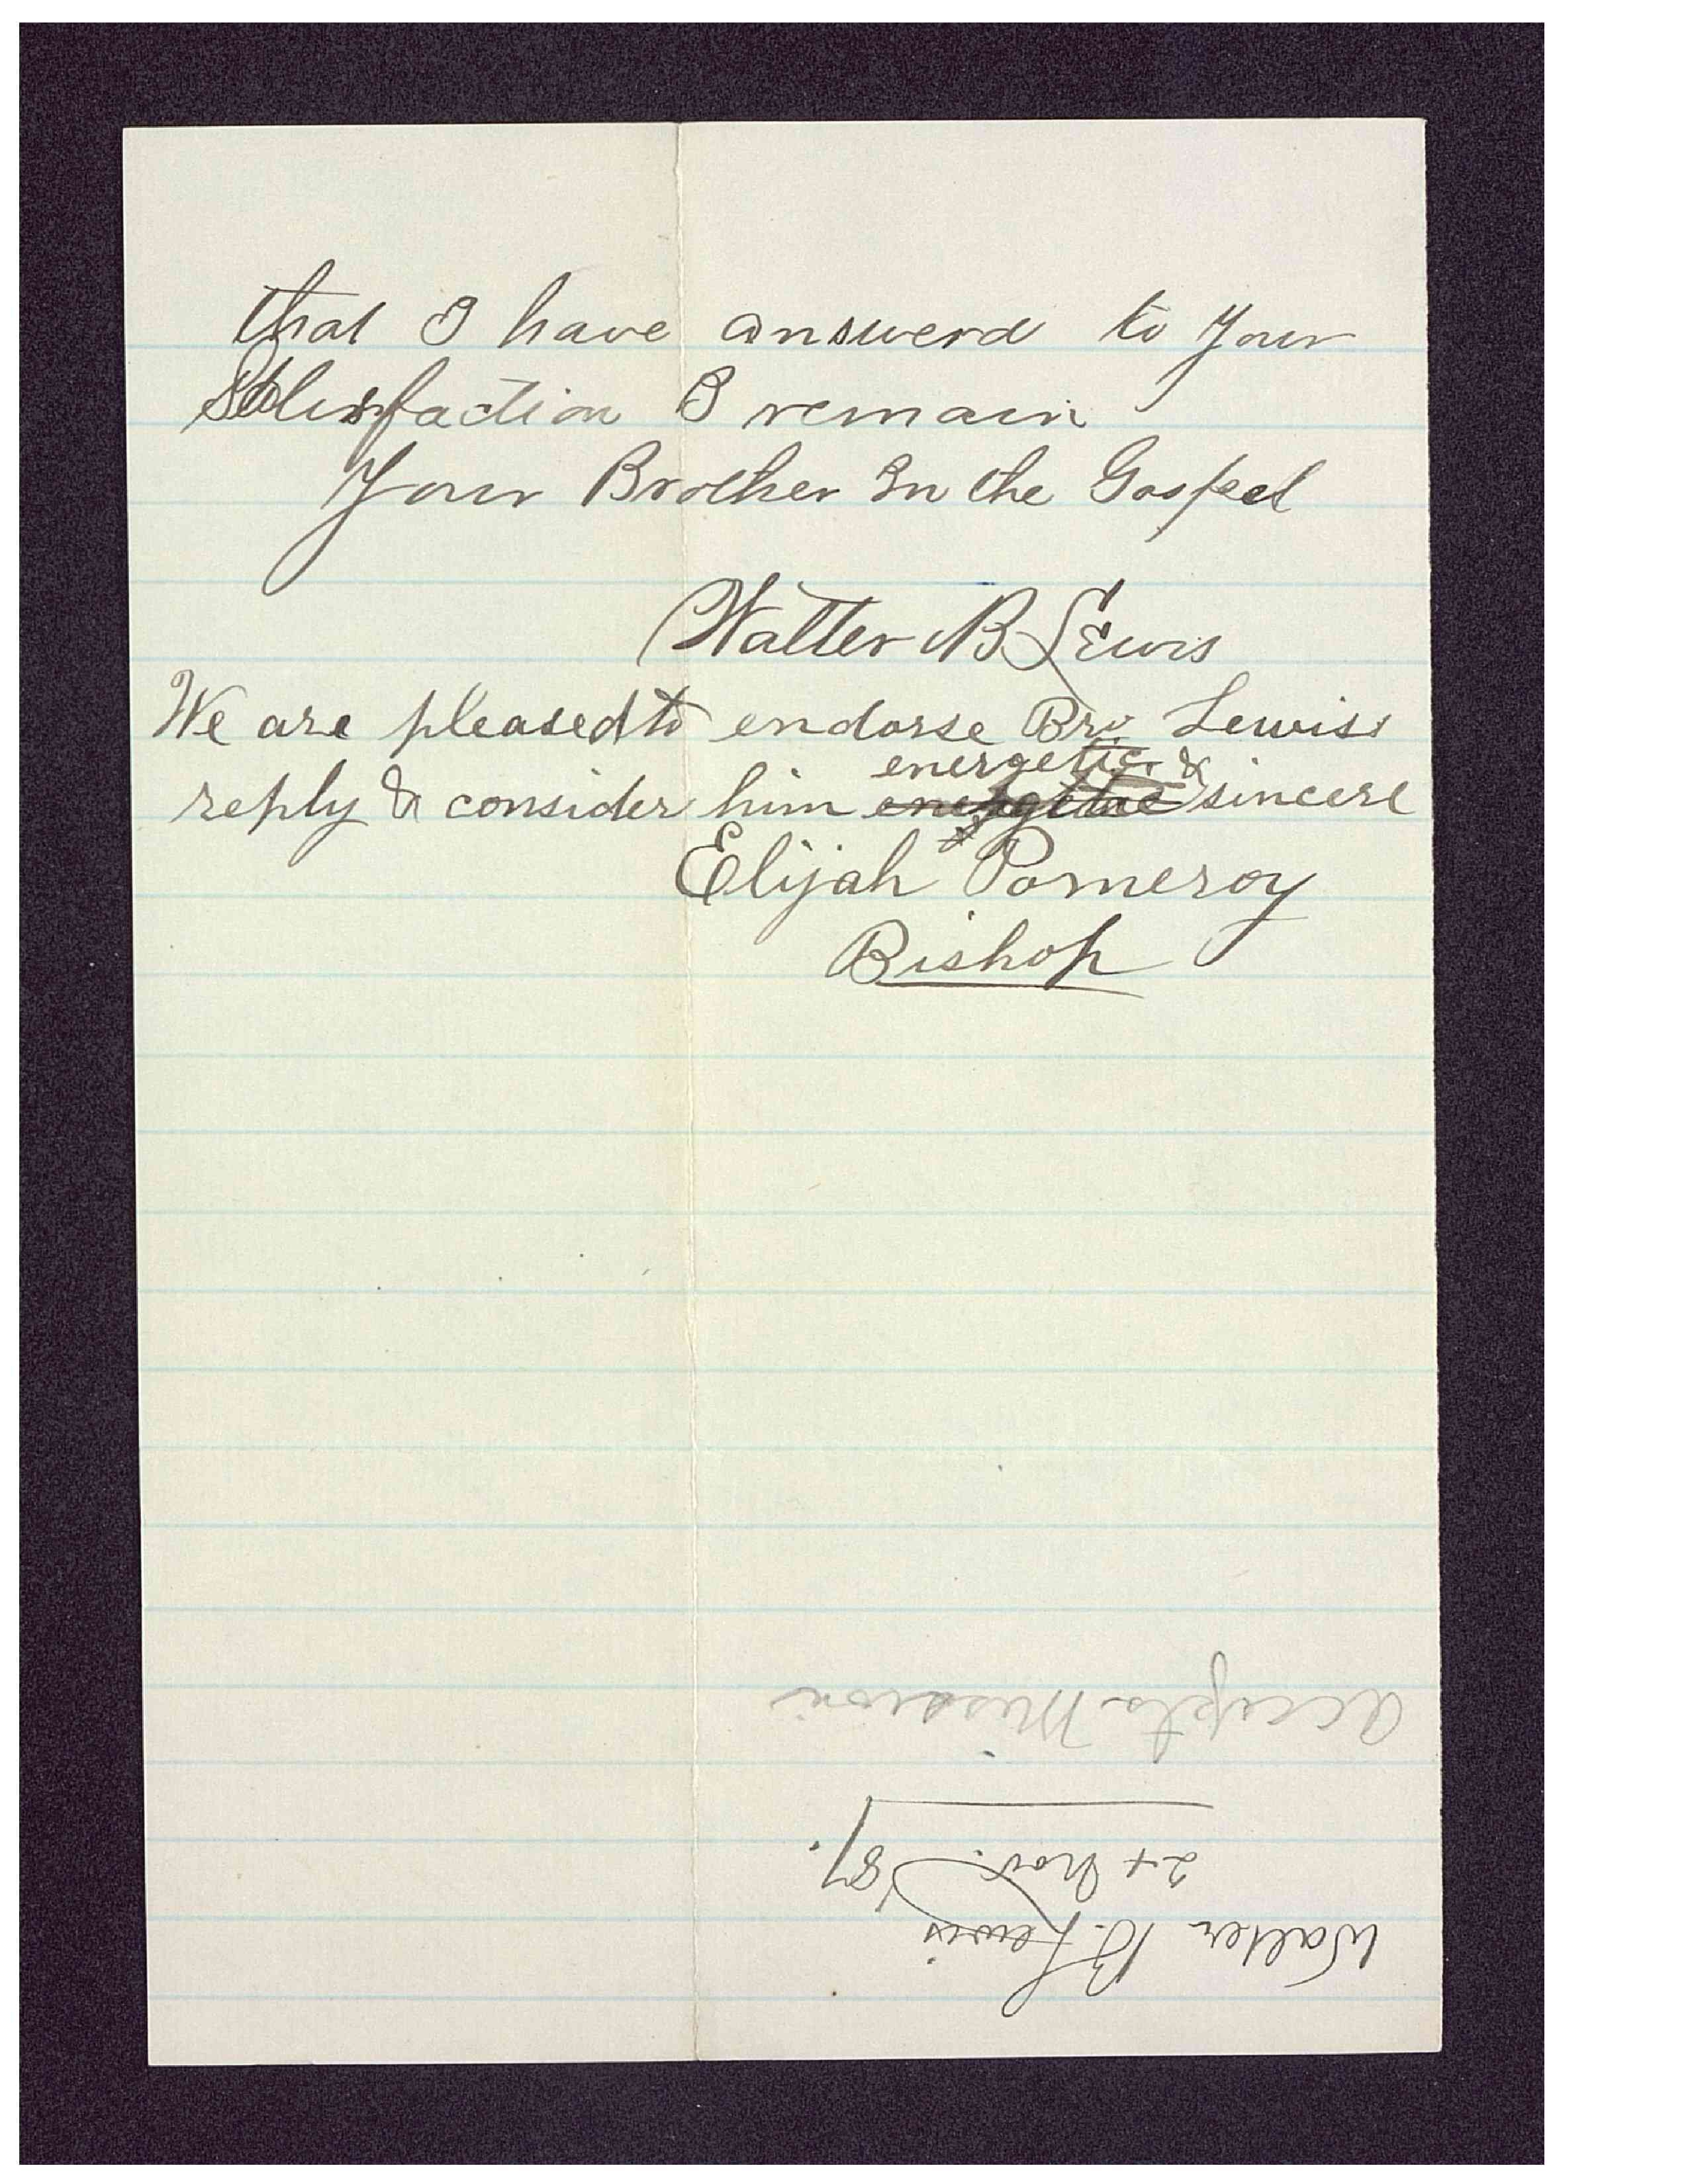 that I have answerd to Your
Satisfaction I remain
Your Brother In the Gospel
Walter B Lewis
We are pleased to endorse Bro Lewiss
energetic &
reply & consider him energetic sincere
Elijah Pomeroy
Bishop
Walter B. Lewis
Nov. 87.
Accepts Mission